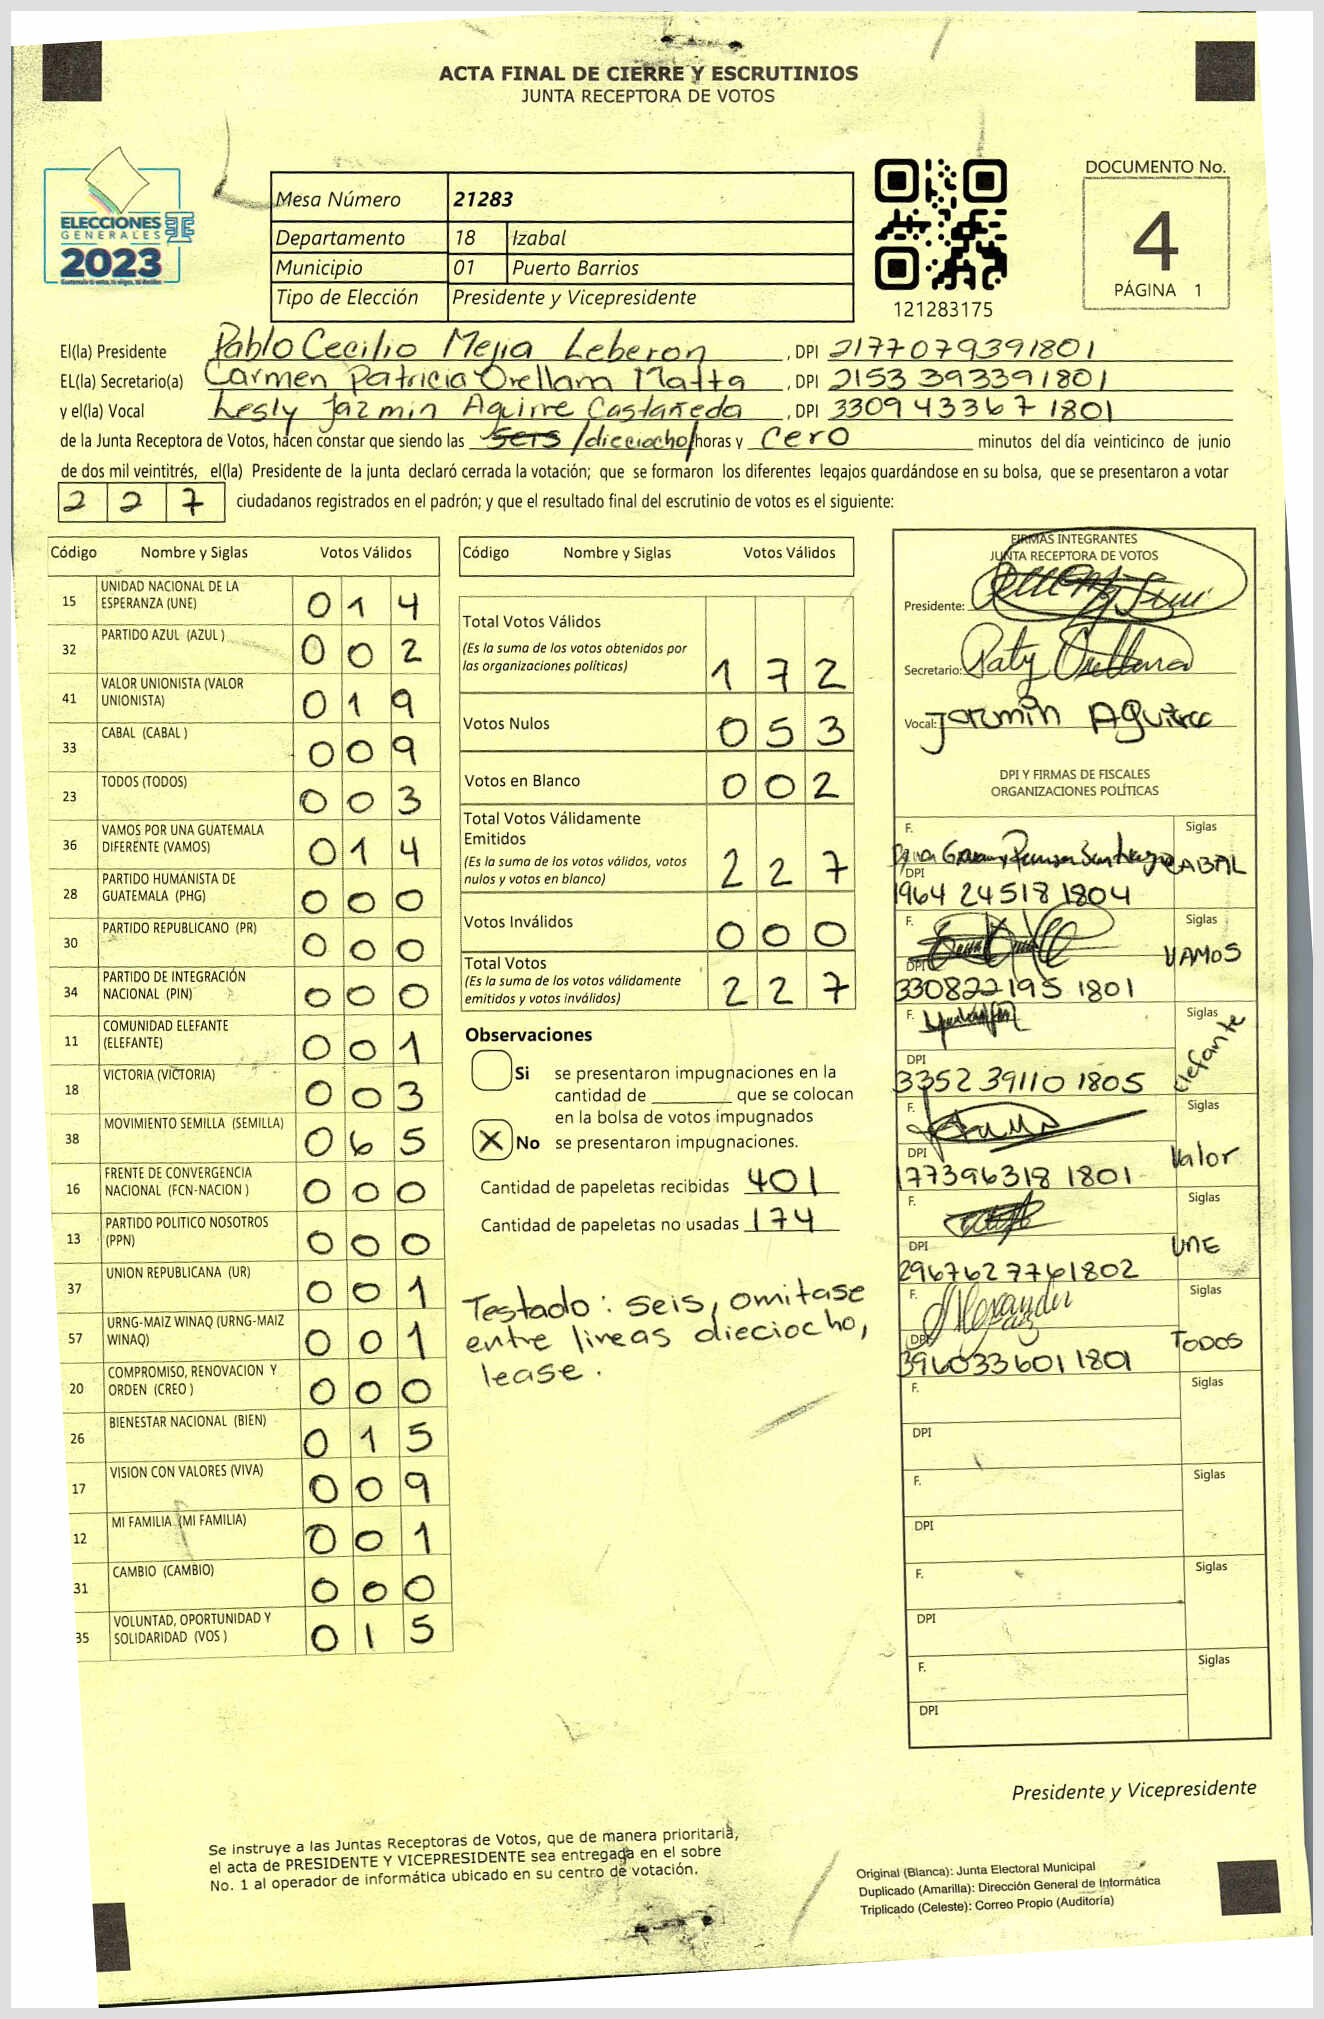 ACTA FINAL DE CIERRE Y ESCRUTINIOS
JUNTA RECEPTORA DE VOTOS
ELECCIONES
GENERALES
2023
Mesa Número 21283
Departamento 18 Izabal
Municipio 01 Puerto Barrios
Tipo de Elección Presidente y Vicepresidente
121283175
DOCUMENTO No.
4
PÁGINA 1
El(la) Presidente Pablo Cecilio Mejia Leberon , DPI 2177079391801
EL(la) Secretario(a) Carmen Patricia Orellana Matta , DPI 2153 39339 1801
y el(la) Vocal Lesly Jazmin Aguirre Castañeda , DPI 3309 43367 1801
de la Junta Receptora de Votos, hacen constar que siendo las seis /dieciocho/ horas y cero minutos del día veinticinco de junio
de dos mil veintitrés, el(la) Presidente de la junta declaró cerrada la votación; que se formaron los diferentes legajos quardándose en su bolsa, que se presentaron a votar
2 2 7 ciudadanos registrados en el padrón; y que el resultado final del escrutinio de votos es el siguiente:
Código Nombre y Siglas Votos Válidos
15 UNIDAD NACIONAL DE LA ESPERANZA (UNE) 0 1 4
32 PARTIDO AZUL (AZUL ) 0 0 2
41 VALOR UNIONISTA (VALOR UNIONISTA) 0 1 9
33 CABAL (CABAL ) 0 0 9
23 TODOS (TODOS) 0 0 3
36 VAMOS POR UNA GUATEMALA DIFERENTE (VAMOS) 0 1 4
28 PARTIDO HUMANISTA DE GUATEMALA (PHG) 0 0 0
30 PARTIDO REPUBLICANO (PR) 0 0 0
34 PARTIDO DE INTEGRACIÓN NACIONAL (PIN) 0 0 0
11 COMUNIDAD ELEFANTE (ELEFANTE) 0 0 1
18 VICTORIA (VICTORIA) 0 0 3
38 MOVIMIENTO SEMILLA (SEMILLA) 0 6 5
16 FRENTE DE CONVERGENCIA NACIONAL (FCN-NACION ) 0 0 0
13 PARTIDO POLITICO NOSOTROS (PPN) 0 0 0
37 UNION REPUBLICANA (UR) 0 0 1
57 URNG-MAIZ WINAQ (URNG-MAIZ WINAQ) 0 0 1
20 COMPROMISO, RENOVACION Y ORDEN (CREO ) 0 0 0
26 BIENESTAR NACIONAL (BIEN) 0 1 5
17 VISION CON VALORES (VIVA) 0 0 9
12 MI FAMILIA (MI FAMILIA) 0 0 1
31 CAMBIO (CAMBIO) 0 0 0
35 VOLUNTAD, OPORTUNIDAD Y SOLIDARIDAD (VOS ) 0 1 5
Código Nombre y Siglas Votos Válidos
Total Votos Válidos
(Es la suma de los votos obtenidos por
las organizaciones políticas) 1 7 2
Votos Nulos 0 5 3
Votos en Blanco 0 0 2
Total Votos Válidamente
Emitidos
(Es la suma de los votos válidos, votos
nulos y votos en blanco) 2 2 7
Votos Inválidos 0 0 0
Total Votos
(Es la suma de los votos válidamente
emitidos y votos inválidos) 2 2 7
Observaciones
Si se presentaron impugnaciones en la
cantidad de ________ que se colocan
en la bolsa de votos impugnados
X No se presentaron impugnaciones.
Cantidad de papeletas recibidas 401
Cantidad de papeletas no usadas 174
Testado: seis, omitase
entre lineas dieciocho,
lease.
FIRMAS INTEGRANTES
JUNTA RECEPTORA DE VOTOS
Presidente:
Secretario: Paty Orellana
Vocal: Jazmin Aguirre
DPI Y FIRMAS DE FISCALES
ORGANIZACIONES POLÍTICAS
F. Siglas CABAL
DPI 1964 24518 1804
F. Siglas VAMOS
DPI 330822195 1801
F. Siglas Elefante
DPI 3352 39110 1805
F. Siglas Valor
DPI 177396318 1801
F. Siglas UNE
DPI 2967627761802
F. Alexander Siglas TODOS
DPI 3960336011801
F. Siglas
DPI
F. Siglas
DPI
F. Siglas
DPI
F. Siglas
DPI
Presidente y Vicepresidente
Se instruye a las Juntas Receptoras de Votos, que de manera prioritaria,
el acta de PRESIDENTE Y VICEPRESIDENTE sea entregada en el sobre
No. 1 al operador de informática ubicado en su centro de votación.
Original (Blanca): Junta Electoral Municipal
Duplicado (Amarilla): Dirección General de Informática
Triplicado (Celeste): Correo Propio (Auditoría)